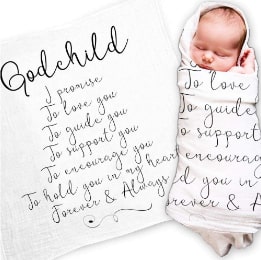 Godchild
I promise
To love you
To guide you
To support you
To encourage you
To hold you in my heart
Forever & Always
To love
To guide
To support
To encourage
old you in my
Forever & A